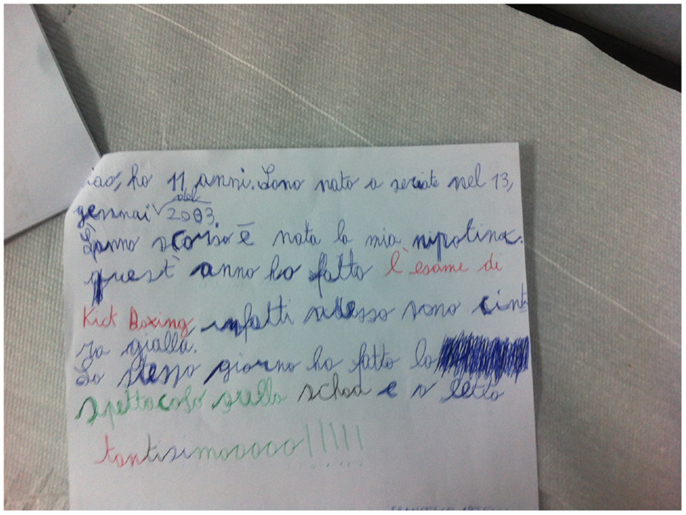 iao, ho 11 anni. Sono nato a seriate nel 13,
gennai 2003.
L'anno scorso è nata la mia nipotina.
quest'anno ho fatto l'esame di
Kick Boxing infatti adesso sono cint
za gialla.
Lo stesso giorno ho fatto lo
spettacolo sulla schoa e o letto
tantisimooooo!!!!!